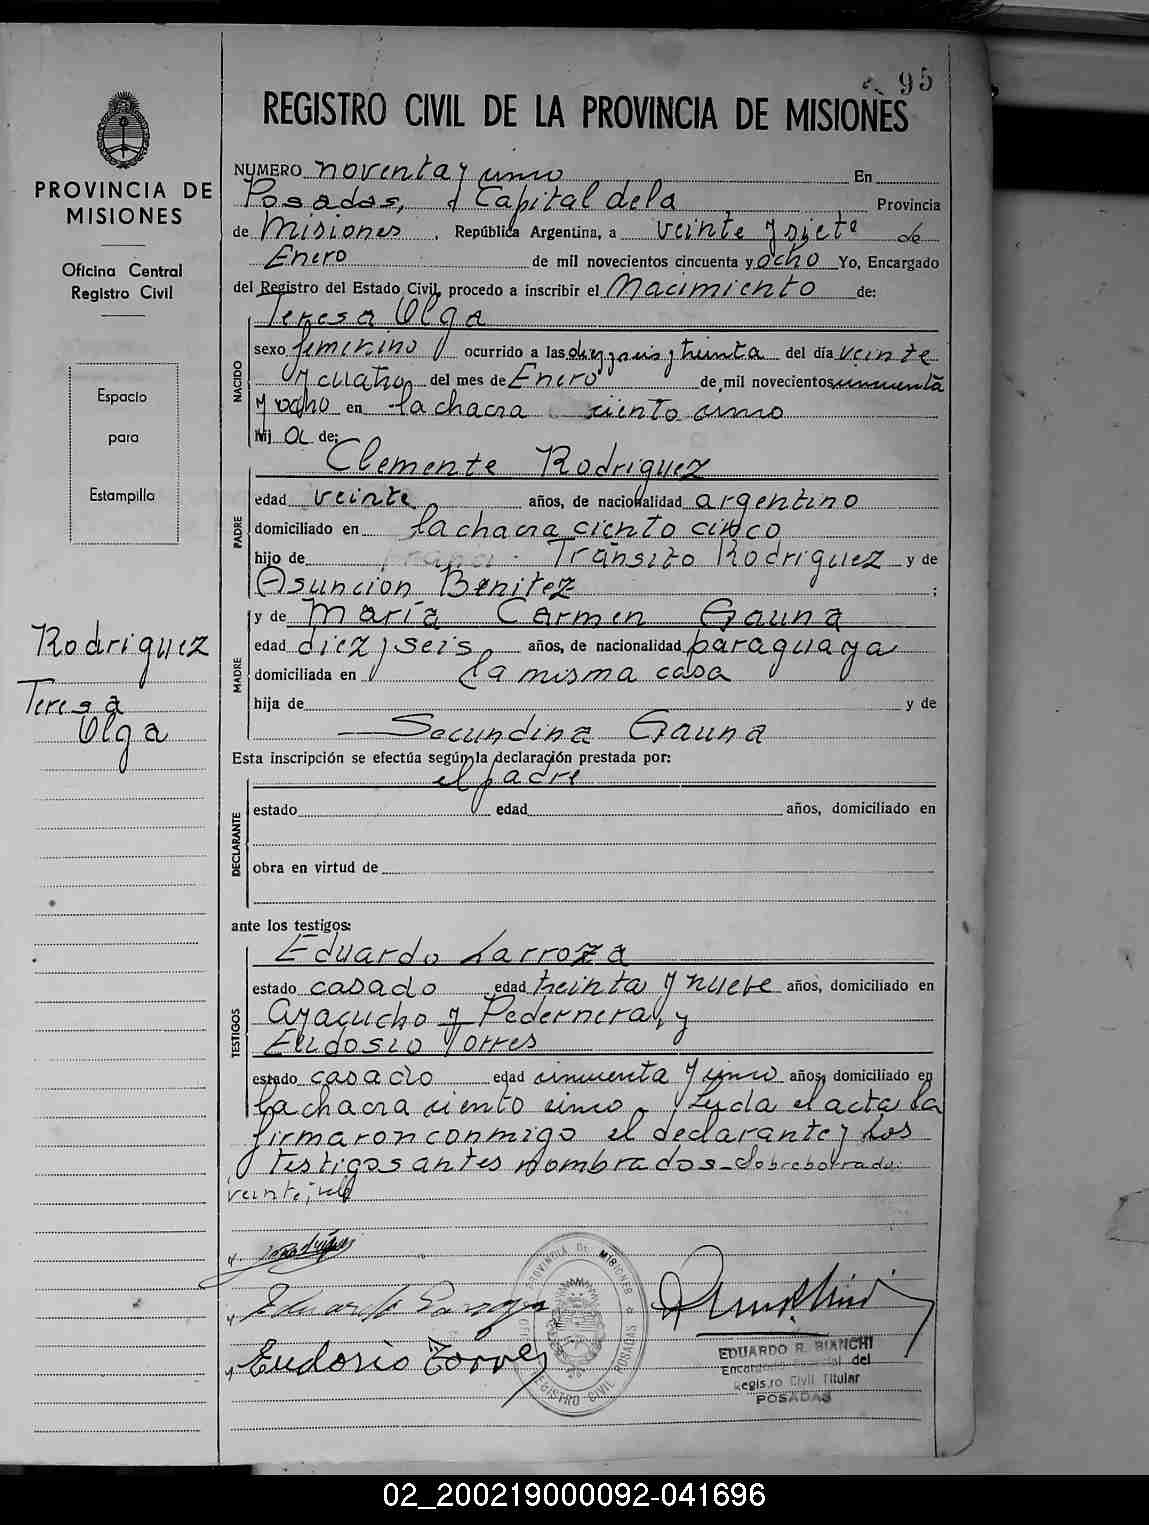 95
REGISTRO CIVIL DE LA PROVINCIA DE MISIONES
PROVINCIA DE
MISIONES
Oficina Central
Registro Civil
Espacio
para
Estampilla
Rodriguez
Teresa
Olga
NUMERO noventa y cinco En
Posadas, Capital de la Provincia
de Misiones, República Argentina, a veinte y siete de
Enero de mil novecientos cincuenta y ocho Yo, Encargado
del Registro del Estado Civil, procedo a inscribir el Nacimiento de:
NACIDO
Teresa Olga
sexo femenino ocurrido a las diez y seis y treinta del día veinte
y cuatro del mes de Enero de mil novecientos cincuenta
y ocho en la chacra ciento cinco
Hij a de:
PADRE
Clemente Rodriguez
edad veinte años, de nacionalidad argentino
domiciliado en la chacra ciento cinco
hijo de Tránsito Rodriguez y de
Asuncion Benitez ;
MADRE
y de María Carmen Gauna
edad diez y seis años, de nacionalidad paraguaya
domiciliada en la misma casa
hija de y de
Secundina Gauna
Esta inscripción se efectúa según la declaración prestada por:
el padre
DECLARANTE
estado edad años, domiciliado en
obra en virtud de
ante los testigos:
TESTIGOS
Eduardo Larroza
estado casado edad treinta y nueve años, domiciliado en
Ayacucho y Pedernera, y
Eudosio Torres
estado casado edad cincuenta y cinco años, domiciliado en
la chacra ciento cinco. Leida el acta la
firmaron conmigo el declarante y los
Testigos antes nombrados - sobreborrado:
veinte;
Eduardo Larroza
Eudosio Torres
PROVINCIA DE MISIONES
REGISTRO CIVIL POSADAS
EDUARDO R. BIANCHI
del
Registro Civil Titular
POSADAS
02_200219000092-041696